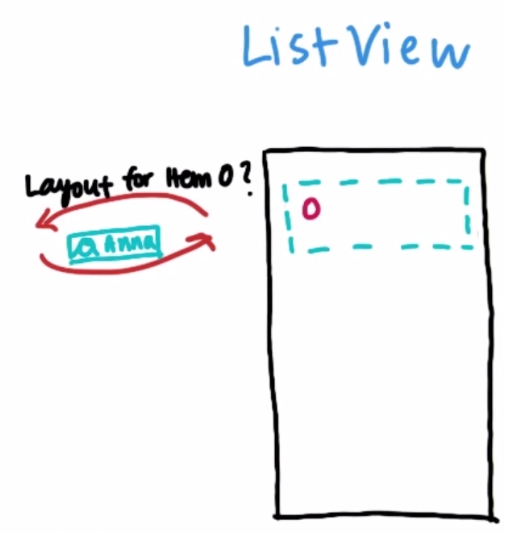 ListView
Layout for Item 0?
0
Anna